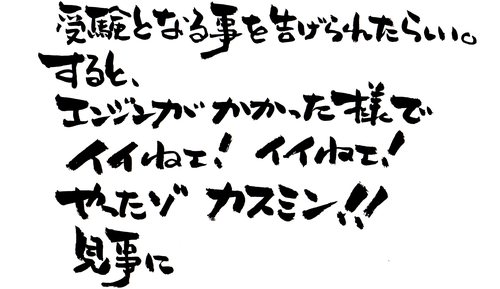 受験となる事を告げられたらしい。
すると、
エンジンがかかった様で
イイねェ! イイねェ!
やったゾ カスミン!!
見事に